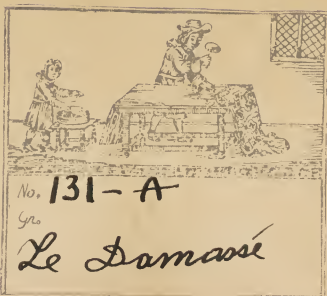 No. 131-A
Yrs.
Le Damassé